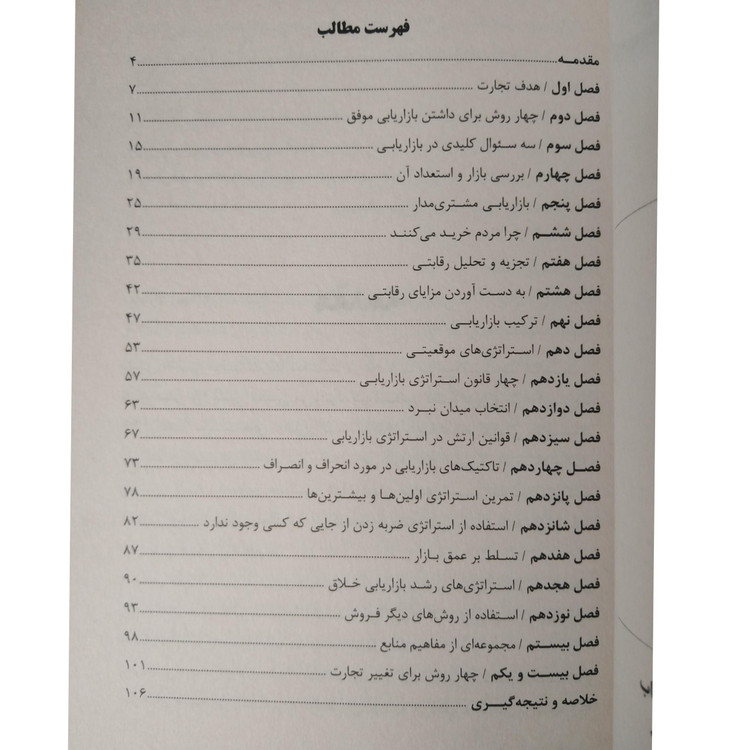 فهرست مطالب
مقدمــه ۴
فصل اول / هدف تجارت ۷
فصل دوم / چهار روش برای داشتن بازاریابی موفق ۱۱
فصل سوم / سه سـئوال کلیدی در بازاریابـی ۱۵
فصل چهارم / بررسی بازار و استعداد آن ۱۹
فصل پنجم / بازاریابی مشـتری‌مدار ۲۵
فصل ششــم / چـرا مردم خرید می‌کننـد ۲۹
فصل هفتم / تجزیه و تحلیل رقابتـی ۳۵
فصل هشتم / به دسـت آوردن مزایای رقابتـی ۴۲
فصل نهم / ترکیب بازاریابـی ۴۷
فصل دهم / اسـتراتژی‌های موقعیتـی ۵۳
فصل یازدهم / چهار قانون اسـتراتژی بازاریابـی ۵۷
فصل دوازدهم / انتخاب میدان نبـرد ۶۳
فصل سیزدهم / قوانین ارتش در اسـتراتژی بازاریابی ۶۷
فصــل چهاردهم / تاکتیک‌های بازاریابی در مورد انحراف و انصـراف ۷۳
فصل پانزدهم / تمرین اسـتراتژی اولین‌هـا و بیشـترین‌ها ۷۸
فصل شانزدهم / استفاده از استراتژی ضربه زدن از جایی که کسی وجود ندارد ۸۲
فصل هفدهم / تسـلط بر عمق بـازار ۸۷
فصل هجدهم / اسـتراتژی‌های رشـد بازاریابی خـلاق ۹۰
فصل نوزدهم / اسـتفاده از روش‌های دیگر فـروش ۹۳
فصل بیسـتم / مجموعه‌ای از مفاهیم منابع ۹۸
فصل بیست و یکم / چهار روش برای تغییر تجارت ۱۰۱
خلاصه و نتیجه‌گیـری ۱۰۶